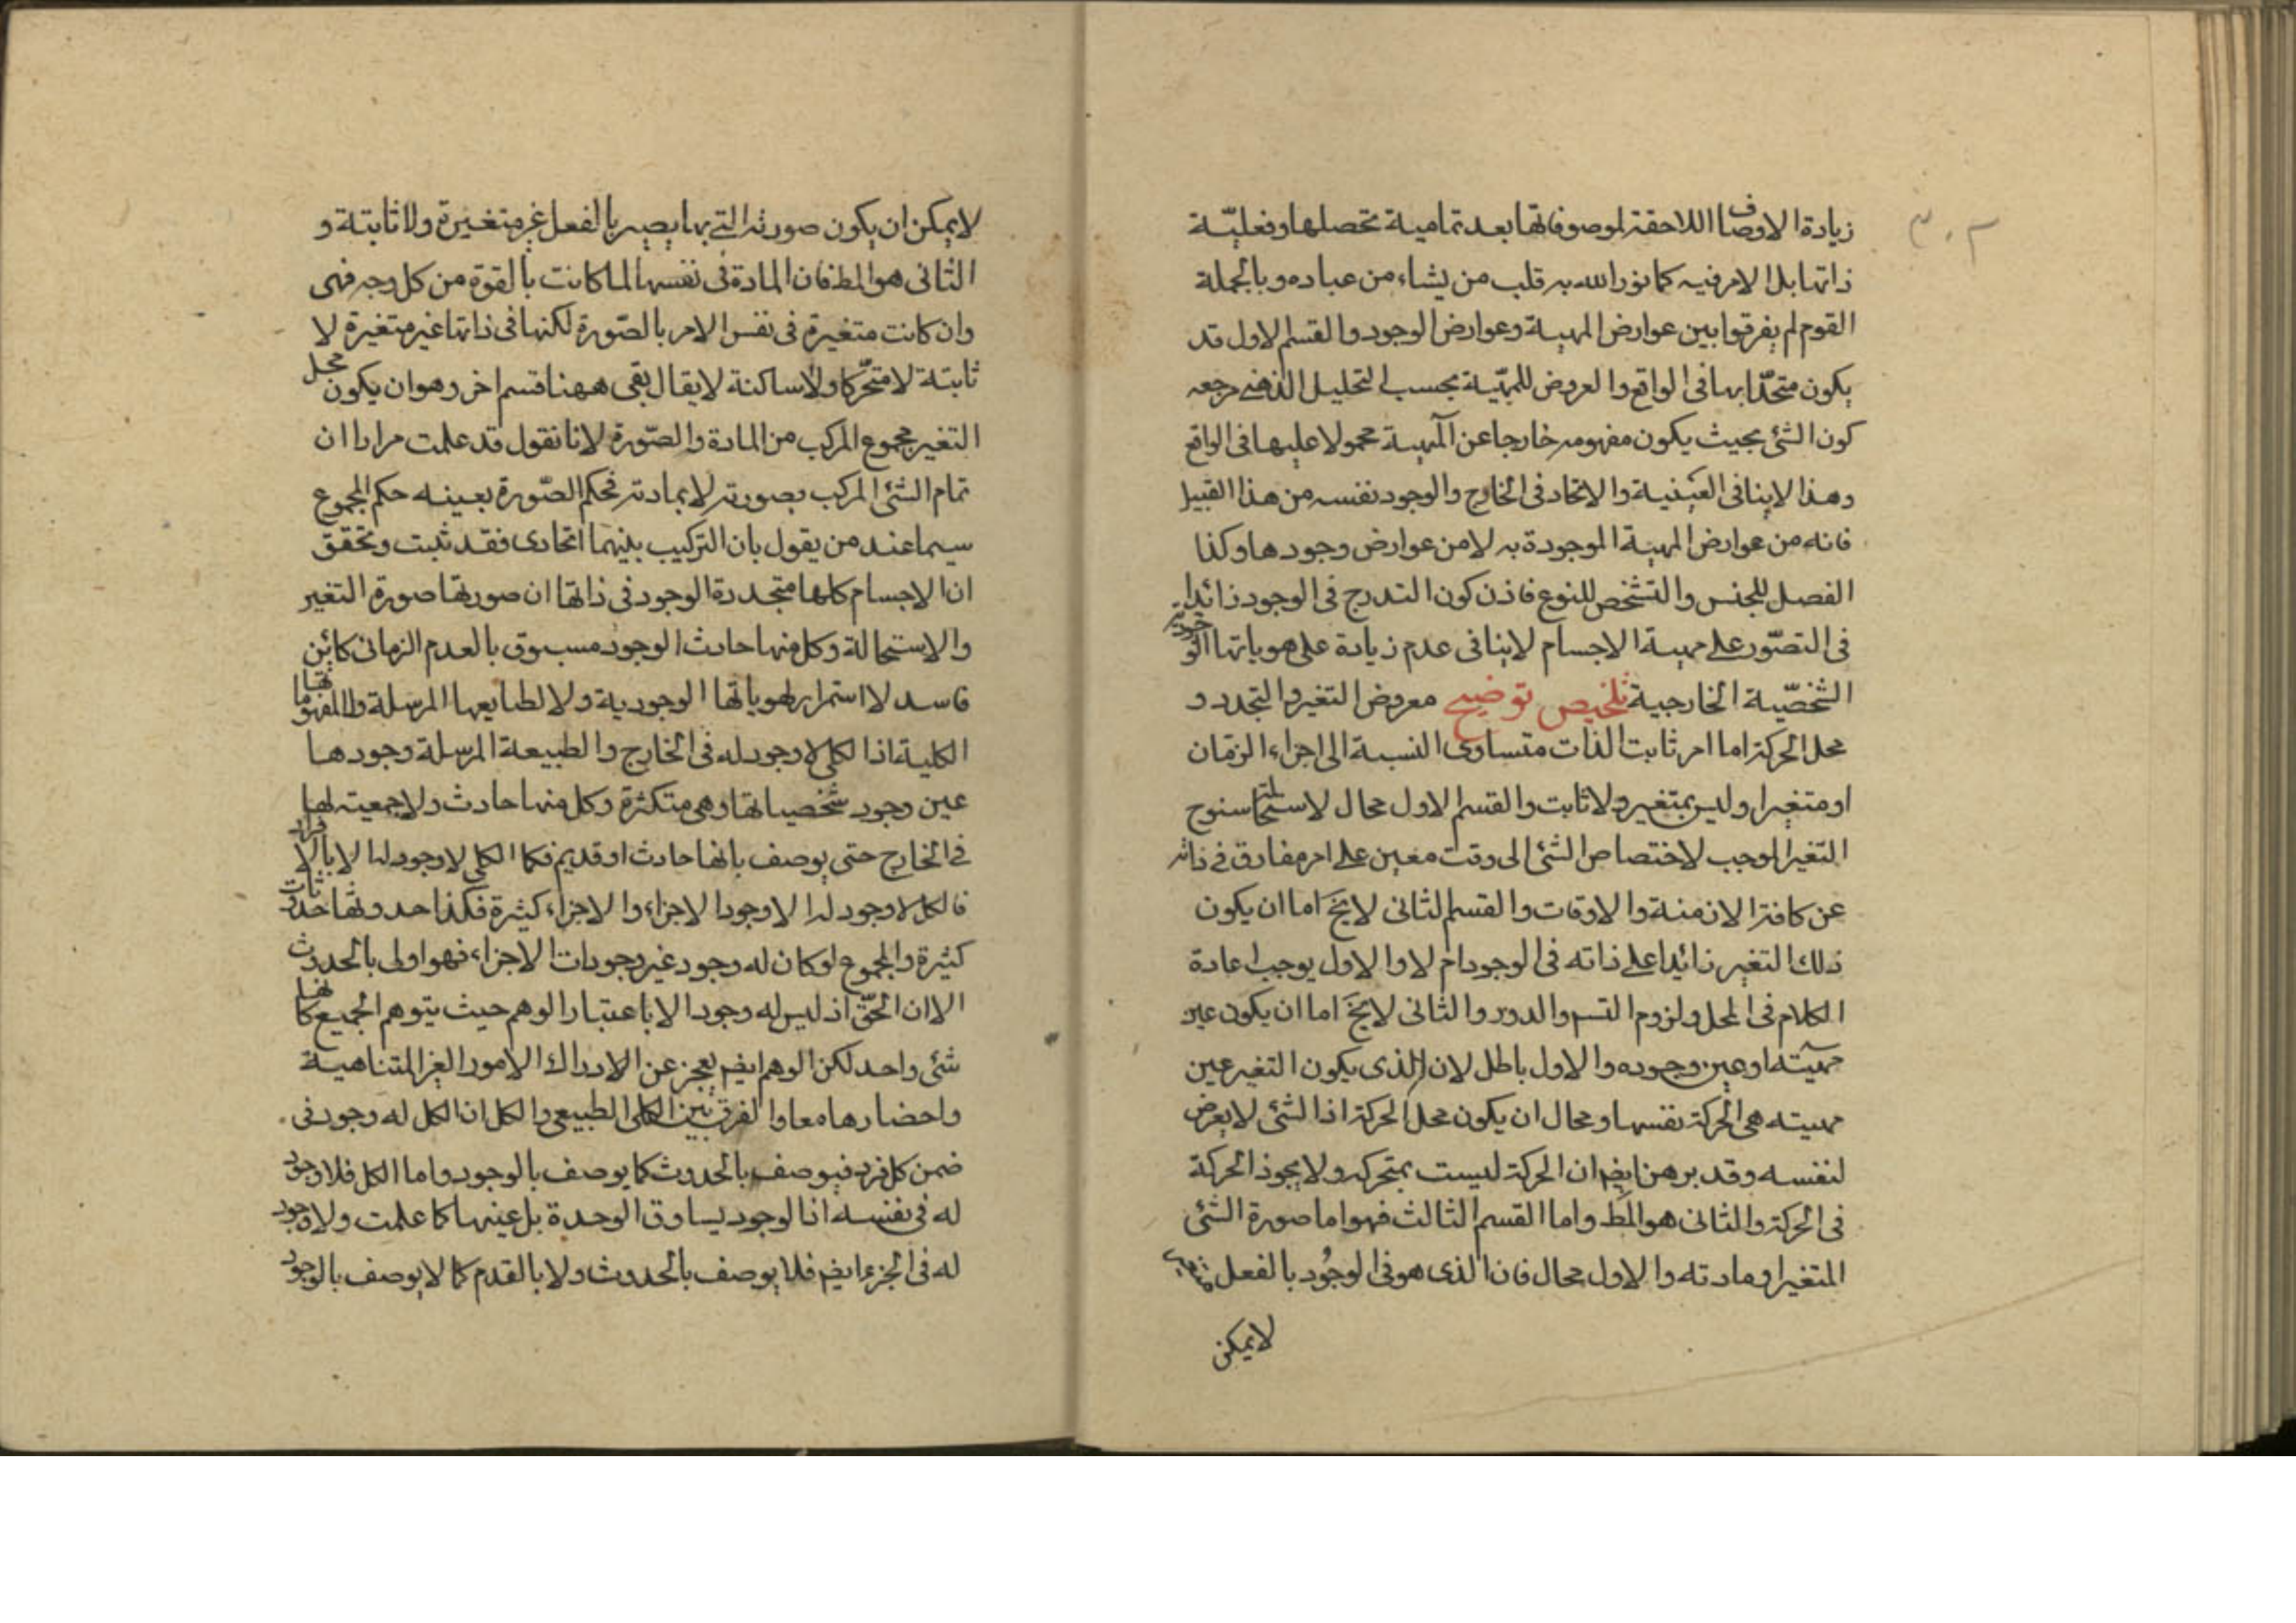 زيادة الاوصاف اللاحقة لموصوفاتها بعد تمامية تحصلها وفعليّة
ذاتها بل الامر فيه كما نور الله به قلب من يشاء من عباده وبالجملة
القوم لم يفرقوا بين عوارض المهية وعوارض الوجود والقسم الاول قد
يكون متحدّا بها فى الواقع والعروض للمهيّة بحسب التحليل الذهنے مرجعه
كون الشئ بحيث يكون مفهومه خارجا عن المهية محمولا عليها فى الواقع
وهذا لاينافى العينية والاتحاد فى الخارج والوجود نفسه من هذا القبيل
فانه من عوارض المهية الموجودة به لا من عوارض وجودها وكذا
الفصل للجنس والتشخص للنوع فاذن كون التدرج فى الوجود زائدا
فى التصّور علے مهية الاجسام لاينافى عدم زيادة على هوياتها الوجودية
الشخصيّة الخارجية تلخيص توضيحے معروض التغير والتجدد و
محل الحركة اما امر ثابت الذات متساوى النسبة الى اجزاء الزمان
او متغير او ليس بمتغير ولا ثابت والقسم الاول محال لاستحالة سنوح
التغير الموجب لاختصاص الشئ الى وقت معين علے امر مفارق فے ذاته
عن كافة الازمنة والاوقات والقسم الثانى لايخ اما ان يكون
ذلك التغير زائدا علے ذاته فى الوجود ام لا والاول يوجب اعادة
الكلام فى المحل ولزوم التسم والدور والثانى لايخ اما ان يكون عين
مهيته او عين وجوده والاول باطل لان الذى يكون التغير عين
مهيته هى الحركة نفسها ومحال ان يكون محل الحركة اذ الشئ لايعرض
لنفسه وقد برهن ايضم ان الحركة ليست بمتحركة ولا يجوز الحركة
فى الحركة والثانى هو المط واما القسم الثالث فهو اما صورة الشئ
المتغير او مادته والاول محال فان الذى هو فى الوجود بالفعل
لايمكن
لايمكن ان يكون صورته التے بها يصير بالفعل غير متغيرة ولا ثابتة و
الثانى هو المط فان المادة فى نفسها لما كانت بالقوة من كل وجه فهى
وان كانت متغيرة فى نفس الامر بالصّورة لكنها فى ذاتها غير متغيرة لا
ثابتة لا متحّركا ولا ساكنة لايقال بقى ههنا قسم اخر وهو ان يكون محل
التغير مجموع المركب من المادة والصّورة لانا نقول قد علمت مرارا ان
تمام الشئ المركب بصورته لا بمادته فحكم الصّورة بعينه حكم المجموع
سيما عند من يقول بان التركيب بينهما اتحادى فقد ثبت وتحقق
ان الاجسام كلها متجددة الوجود فى ذاتها ان صورتها صورة التغير
والاستحالة وكل منها حادث الوجود مسبوق بالعدم الزمانى كائن
فاسد لا استمرار لهوياتها الوجودية ولا لطبايعها المرسلة والمفهوماتها
الكلية اذ الكلى لا وجود له فى الخارج والطبيعة المرسلة وجودها
عين وجود شخصياتها وهى متكثرة وكل منها حادث ولا جمعية لها
فے الخارج حتى يوصف بانها حادث او قديم فكما الكلى لا وجود له الا بالافراد
فالكل لا وجود له الا وجود الاجزاء والاجزاء كثيرة فكذا حدوثها حدوثات
كثيرة والمجموع لو كان له وجود غير وجودات الاجزاء فهو اولى بالحدوث
الا ان الحقّ اذ ليس له وجود الا باعتبار الوهم حيث يتوهم الجميع كانها
شئ واحد لكن الوهم ايضم يعجز عن الادراك الامور الغير المتناهية
واحضارها معا والفرق بين الكلى الطبيعى والكل ان الكل له وجود فى
ضمن كل فرد فيوصف بالحدوث كما يوصف بالوجود واما الكل فلا وجود
له فى نفسه اذ الوجود يساوق الوحدة بل عينها كما علمت ولا وجود
له فى الجزء ايضم فلا يوصف بالحدوث ولا بالقدم كما لا يوصف بالوجود